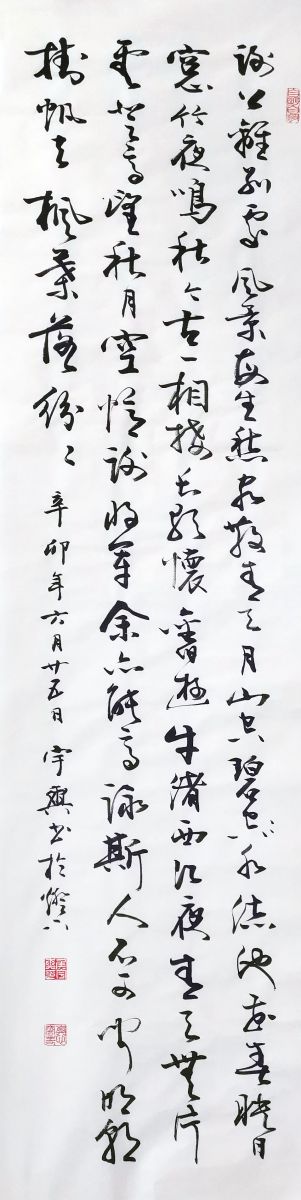 謝公離別處風景每生愁客散青天月山空碧水流池花春映日
窓竹夜鳴秋今古一相接長歌懷舊遊牛渚西江夜青天無片
雲登高望秋月空憶謝將軍余亦能高詠斯人不可聞明朝
掛帆去楓葉落紛〻辛卯年六月廿五日宇興書於燈下